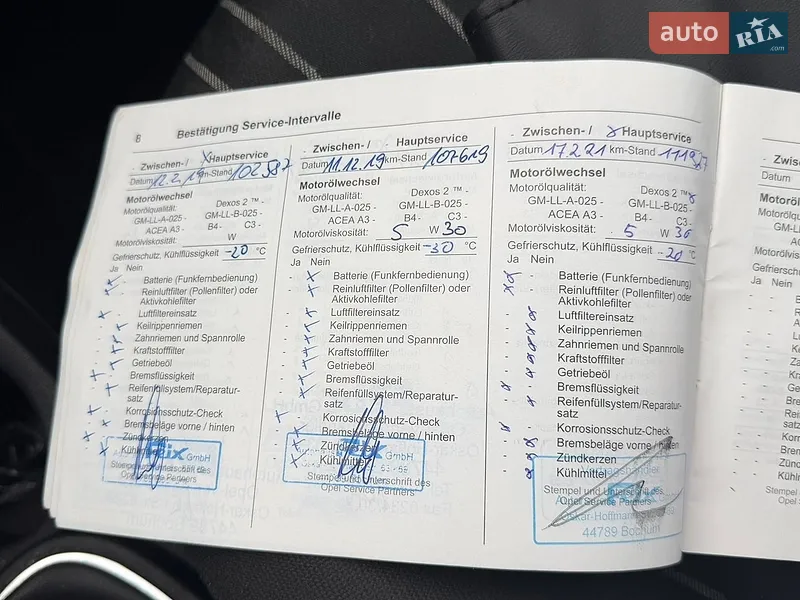 auto RIA.com
8 Bestätigung Service-Intervalle
- Zwischen-/ XHauptservice
Datum 12.2.19 km-Stand 102587
Motorölwechsel
Motorölqualität: Dexos 2 ™ -
GM-LL-A-025 - GM-LL-B-025 -
ACEA A3 - B4- C3 -
Motorölviskosität: W
Gefrierschutz, Kühlflüssigkeit -20 °C
Ja Nein
Batterie (Funkfernbedienung)
Reinluftfilter (Pollenfilter) oder
Aktivkohlefilter
Luftfiltereinsatz
Keilrippenriemen
Zahnriemen und Spannrolle
Kraftstofffilter
Getriebeöl
Bremsflüssigkeit
Reifenfüllsystem/Reparatur-
satz
Korrosionsschutz-Check
Bremsbeläge vorne / hinten
Zündkerzen
GmbH
Stempel und Unterschrift des
Opel Service Partners
- Zwischen-/ - Hauptservice
Datum 11.12.19 km-Stand 107619
Motorölwechsel
Motorölqualität: Dexos 2 ™ -
GM-LL-A-025 - GM-LL-B-025 -
ACEA A3 - B4- C3 -
Motorölviskosität: 5 W 30
Gefrierschutz, Kühlflüssigkeit -30 °C
Ja Nein
Batterie (Funkfernbedienung)
Reinluftfilter (Pollenfilter) oder
Aktivkohlefilter
Luftfiltereinsatz
Keilrippenriemen
Zahnriemen und Spannrolle
Kraftstofffilter
Getriebeöl
Bremsflüssigkeit
Reifenfüllsystem/Reparatur-
satz
Korrosionsschutz-Check
Bremsbeläge vorne / hinten
GmbH
Kühlmittel
Stempel und Unterschrift des
Opel Service Partners
- Zwischen-/ XHauptservice
Datum 17.2.21 km-Stand
Motorölwechsel
Motorölqualität: Dexos 2 ™
GM-LL-A-025 - GM-LL-B-025 -
ACEA A3 - B4- C3 -
Motorölviskosität: 5 W 30
Gefrierschutz, Kühlflüssigkeit -20 °C
Ja Nein
Batterie (Funkfernbedienung)
Reinluftfilter (Pollenfilter) oder
Aktivkohlefilter
Luftfiltereinsatz
Keilrippenriemen
Zahnriemen und Spannrolle
Kraftstofffilter
Getriebeöl
Bremsflüssigkeit
Reifenfüllsystem/Reparatur-
satz
Korrosionsschutz-Check
Bremsbeläge vorne / hinten
Zündkerzen
Kühlmittel
Stempel und Unterschrift des
Opel Service Partners
44789 Bochum
Datum
Ja Nein